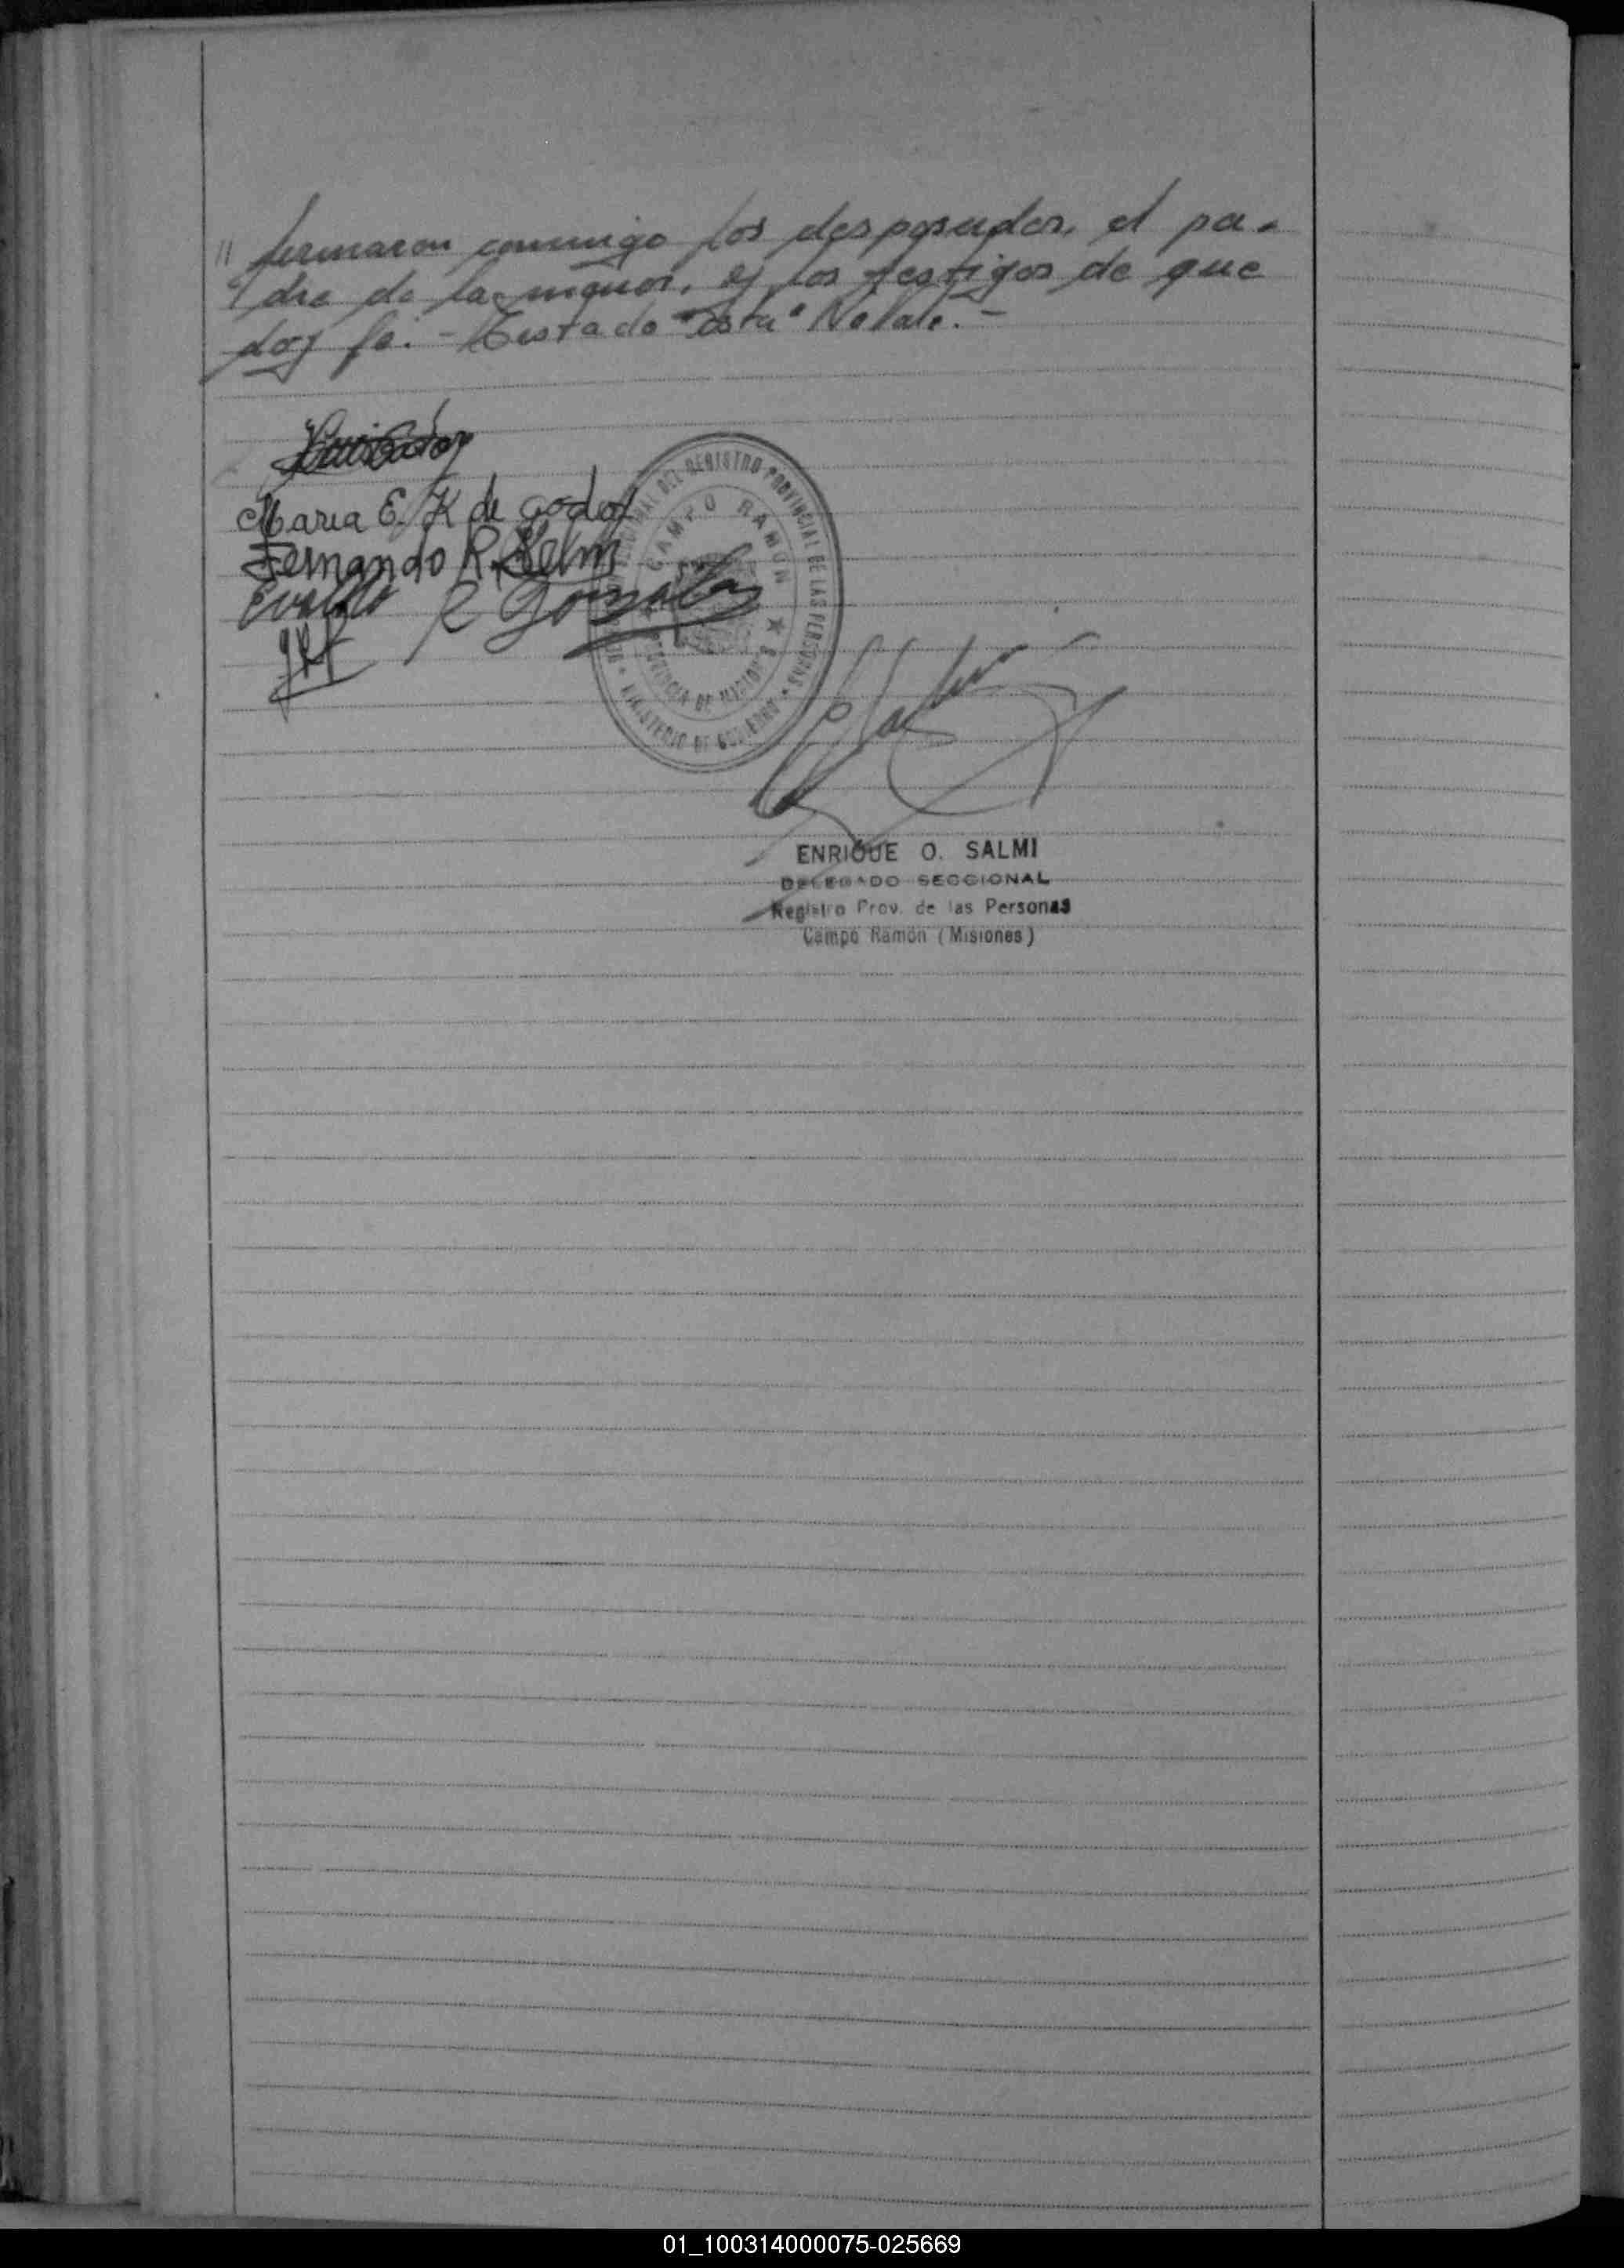 " firmaron conmigo los desposados, el pa-
dre de la menor, y los testigos de que
doy fe. - Testado "esta" No Vale. -
Maria E. K de Godoy
Fernando R. Kelm
Evaldo R Gonzalez
DEL REGISTRO PROVINCIAL DE LAS PERSONAS
CAMPO RAMON
PROVINCIA DE MISIONES
MINISTERIO DE GOBIERNO
ENRIQUE O. SALMI
DELEGADO SECCIONAL
Registro Prov. de las Personas
Campo Ramón (Misiones)
01_100314000075-025669